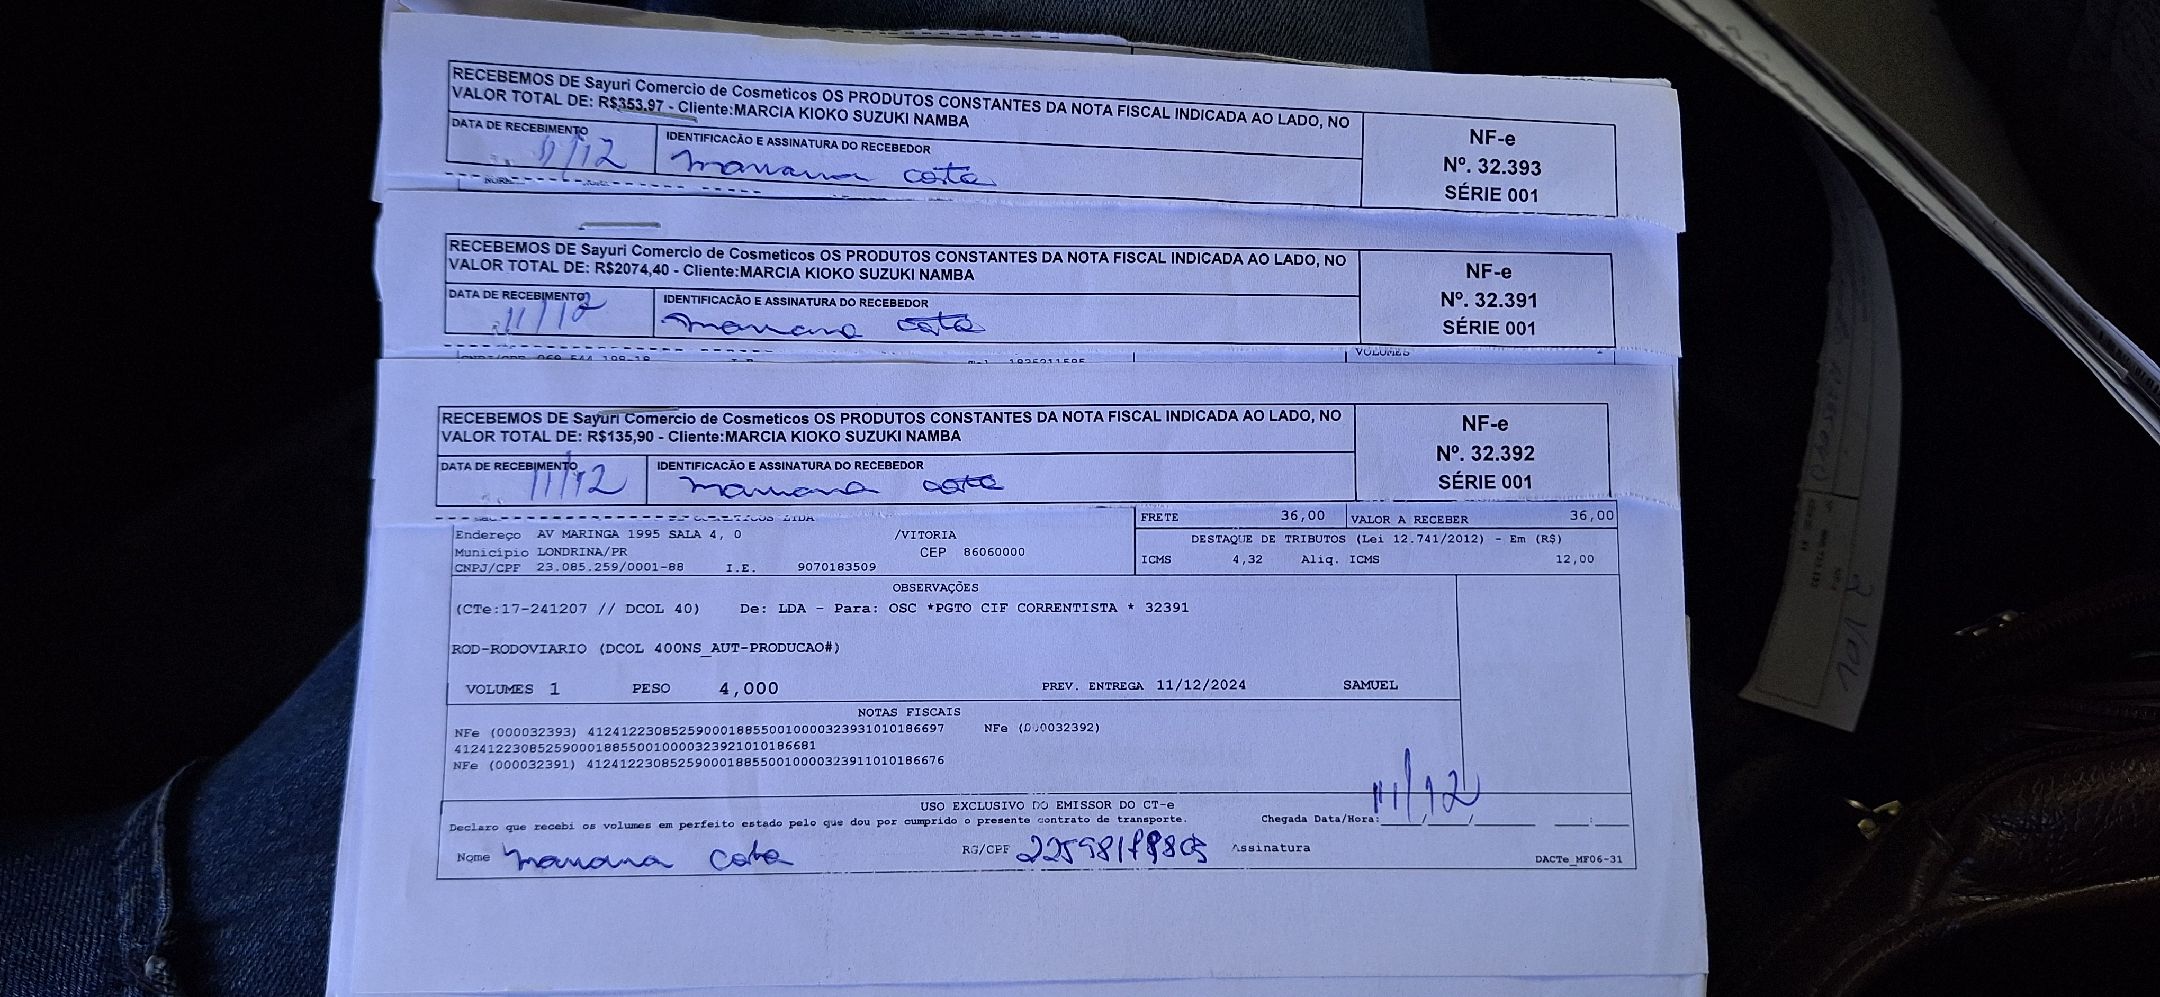 RECEBEMOS DE Sayuri Comercio de Cosmeticos OS PRODUTOS CONSTANTES DA NOTA FISCAL INDICADA AO LADO, NO
VALOR TOTAL DE: R$353,97 - Cliente:MARCIA KIOKO SUZUKI NAMBA
DATA DE RECEBIMENTO
IDENTIFICACÃO E ASSINATURA DO RECEBEDOR
11/12
mariana costa
NF-e
Nº. 32.393
SÉRIE 001
RECEBEMOS DE Sayuri Comercio de Cosmeticos OS PRODUTOS CONSTANTES DA NOTA FISCAL INDICADA AO LADO, NO
VALOR TOTAL DE: R$2074,40 - Cliente:MARCIA KIOKO SUZUKI NAMBA
DATA DE RECEBIMENTO
IDENTIFICACÃO E ASSINATURA DO RECEBEDOR
11/12
mariana costa
NF-e
Nº. 32.391
SÉRIE 001
VOLUMES
RECEBEMOS DE Sayuri Comercio de Cosmeticos OS PRODUTOS CONSTANTES DA NOTA FISCAL INDICADA AO LADO, NO
VALOR TOTAL DE: R$135,90 - Cliente:MARCIA KIOKO SUZUKI NAMBA
DATA DE RECEBIMENTO
IDENTIFICACÃO E ASSINATURA DO RECEBEDOR
11/12
mariana costa
NF-e
Nº. 32.392
SÉRIE 001
FRETE 36,00 VALOR A RECEBER 36,00
Endereço AV MARINGA 1995 SALA 4, 0 /VITORIA
DESTAQUE DE TRIBUTOS (Lei 12.741/2012) - Em (R$)
Município LONDRINA/PR CEP 86060000
ICMS 4,32 Aliq. ICMS 12,00
CNPJ/CPF 23.085.259/0001-88 I.E. 9070183509
OBSERVAÇÕES
(CTe:17-241207 // DCOL 40) De: LDA - Para: OSC *PGTO CIF CORRENTISTA * 32391
ROD-RODOVIARIO (DCOL 400NS_AUT-PRODUCAO#)
VOLUMES 1 PESO 4,000 PREV. ENTREGA 11/12/2024 SAMUEL
NOTAS FISCAIS
NFe (000032393) 41241223085259000188550010000323931010186697 NFe (000032392)
41241223085259000188550010000323921010186681
NFe (000032391) 41241223085259000188550010000323911010186676
11/12
USO EXCLUSIVO DO EMISSOR DO CT-e
Declaro que recebi os volumes em perfeito estado pelo que dou por cumprido o presente contrato de transporte. Chegada Data/Hora:
Nome mariana costa RG/CPF Assinatura
DACTe_MF06-31